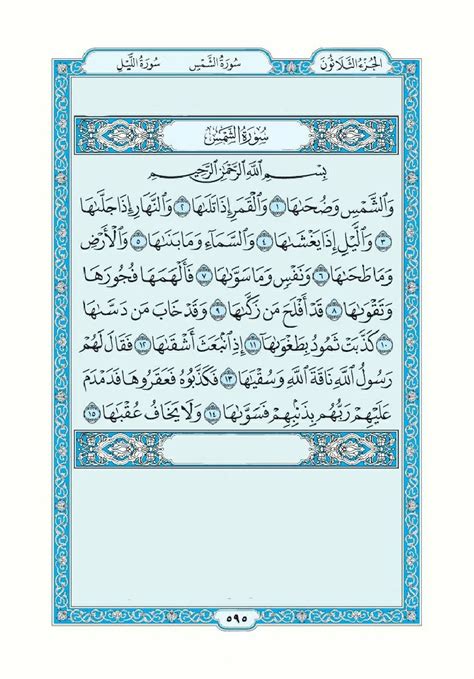 الجزء الثلاثون سورة الشمس سورة الليل
سورة الشمس
بسم الله الرحمن الرحيم
وَالشَّمْسِ وَضُحَىٰهَا ١ وَالْقَمَرِ إِذَا تَلَىٰهَا ٢ وَالنَّهَارِ إِذَا جَلَّىٰهَا
٣ وَالَّيْلِ إِذَا يَغْشَىٰهَا ٤ وَالسَّمَآءِ وَمَا بَنَىٰهَا ٥ وَالْأَرْضِ
وَمَا طَحَىٰهَا ٦ وَنَفْسٍ وَمَا سَوَّىٰهَا ٧ فَأَلْهَمَهَا فُجُورَهَا
وَتَقْوَىٰهَا ٨ قَدْ أَفْلَحَ مَن زَكَّىٰهَا ٩ وَقَدْ خَابَ مَن دَسَّىٰهَا
١٠ كَذَّبَتْ ثَمُودُ بِطَغْوَىٰهَآ ١١ إِذِ انۢبَعَثَ أَشْقَىٰهَا ١٢ فَقَالَ لَهُمْ
رَسُولُ اللَّهِ نَاقَةَ اللَّهِ وَسُقْيَٰهَا ١٣ فَكَذَّبُوهُ فَعَقَرُوهَا فَدَمْدَمَ
عَلَيْهِمْ رَبُّهُم بِذَنۢبِهِمْ فَسَوَّىٰهَا ١٤ وَلَا يَخَافُ عُقْبَٰهَا ١٥
٥٩٥